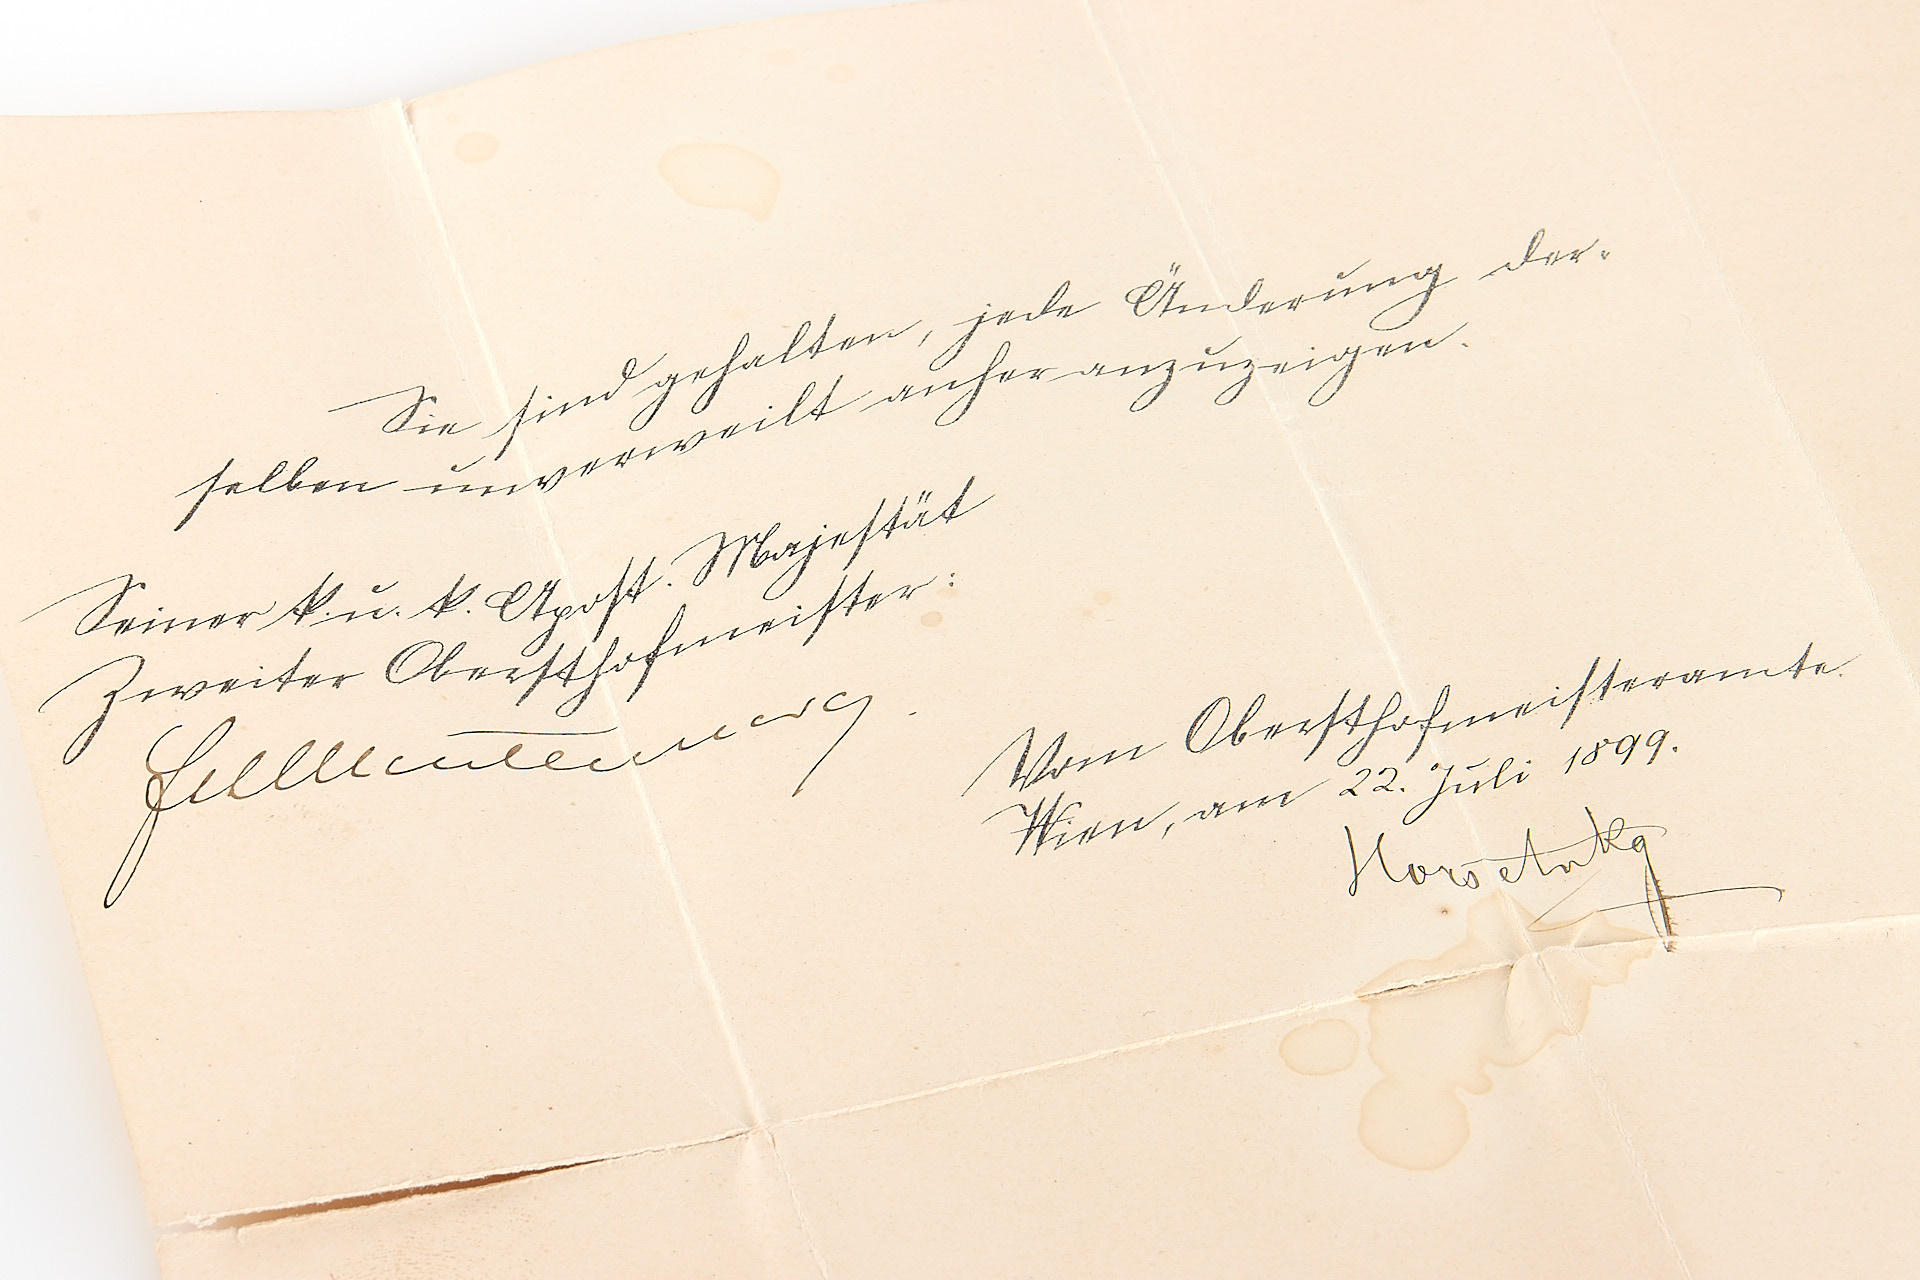 Sie sind gehalten, jede Änderung der-
selben unverweilt anher anzuzeigen.
Seiner k. u. k. Apost. Majestät
Zweiter Obersthofmeister:
Vom Obersthofmeisteramte.
Wien, am 22. Juli 1899.